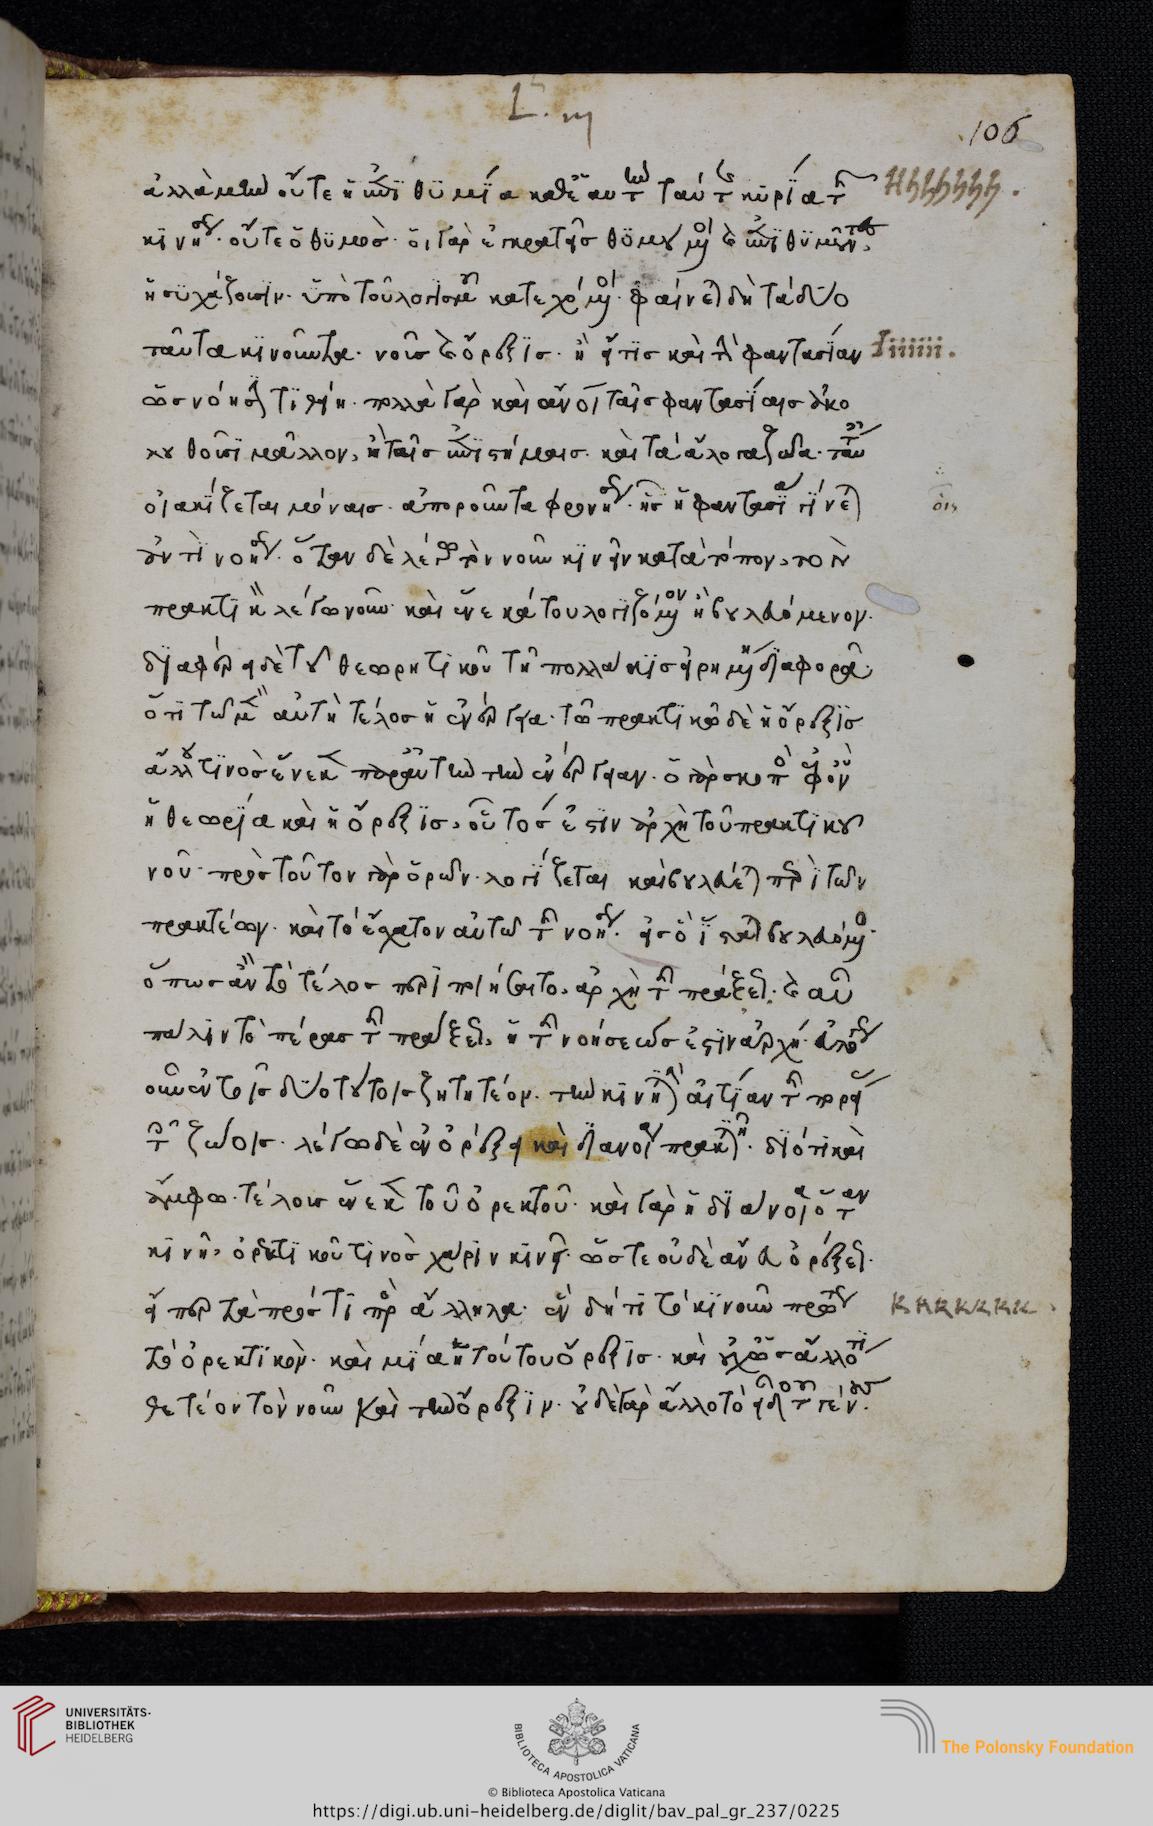 L. m
106
ἀλλὰ μὴν οὔτε ἡ ἐπιθυμία καθ' ἑαυτὴν ταύτης κυρία τῆς Hhhhhhh.
κινήσεως. οὔτε ὁ θυμὸς. οἱ γὰρ ἐγκρατεῖς θυμούμενοι καὶ ἐπιθυμοῦντες,
ἡσυχάζουσιν. ὑπὸ τοῦ λογισμοῦ κατεχόμενοι. φαίνεται δὴ τὰ δύο
ταῦτα κινοῦντα. νοῦς καὶ ὄρεξις. εἴ τις καὶ τὴν φαντασίαν Iiiiiii.
ὡς νόησιν τιθείη. πολλὰ γὰρ καὶ ἄνοι ταῖς φαντασίαις ἀκο
λουθοῦσι μᾶλλον, ἢ ταῖς ἐπιστήμαις. καὶ τὰ ἄλογα ζῶα. ταύταις
οἰακίζεται μόναις. ἀποροῦντα φρονήσεως. ἡ φαντασία γίνεται
ἀντὶ νοήσεως. ὅταν δὲ λέγωμεν τὸν νοῦν κινεῖν κατὰ τόπον, τὸν
πρακτικὸν λέγω νοῦν. καὶ ἕνεκά του λογιζόμενον ἢ βουλευόμενον.
διαφέρει δὲ τοῦ θεωρητικοῦ τῇ πολλάκις εἰρημένῃ διαφορᾷ.
ὅτι τῷ μὲν αὐτὴ τέλος ἡ ἐνέργεια. τῷ πρακτικῷ δὲ ἡ ὄρεξις
ἄλλου τινὸς ἕνεκα παρ' αὐτὴν τὴν ἐνέργειαν. ὁ γὰρ σκοπὸς ἐφ' ὃν
ἡ θεωρία καὶ ἡ ὄρεξις, οὗτός ἐστιν ἀρχὴ τοῦ πρακτικοῦ
νοῦ. πρὸς τοῦτον γὰρ ὁρῶν. λογίζεται καὶ βουλεύεται περὶ τῶν
πρακτέων. καὶ τὸ ἔσχατον αὐτῷ τῆς νοήσεως. εἰς ὃ ἵσταται βουλευόμενος.
ὅπως ἂν τὸ τέλος περιποιήσαιτο, ἀρχὴ τῆς πράξεως. καὶ αὖ
πάλιν τὸ πέρας τῆς πράξεως, ἡ τῆς νοήσεώς ἐστιν ἀρχή.
οὖν ἐν τοῖς δύο τούτοις ζητητέον. τὴν κινητικὴν αἰτίαν τῆς πορείας
τοῖς ζώοις. λέγω δὲ ἐν ὀρέξει καὶ διανοίᾳ πρακτικῇ. διότι καὶ
ἄμφω. τέλους ἕνεκα τοῦ ὀρεκτοῦ. καὶ γὰρ ἡ διάνοια ὅταν
κινῇ, ὀρεκτικοῦ τινὸς χάριν κινεῖ. ὥστε οὐδὲ ἄνευ ὀρέξεως.
εἴπερ τὰ πρός τι πρὸς ἄλληλα. ἓν δή τι τὸ κινοῦν πρώτως Kkkkkkk.
τὸ ὀρεκτικόν. καὶ μία ἡ τούτου ὄρεξις. καὶ οὐχ ὡς ἄλλο τι
θετέον τὸν νοῦν καὶ τὴν ὄρεξιν. οὐδὲ γὰρ ἄλλο τὸ εἶδος τοῦ γένους.
UNIVERSITÄTS-
BIBLIOTHEK
HEIDELBERG
BIBLIOTECA APOSTOLICA VATICANA
The Polonsky Foundation
© Biblioteca Apostolica Vaticana
https://digi.ub.uni-heidelberg.de/diglit/bav_pal_gr_237/0225